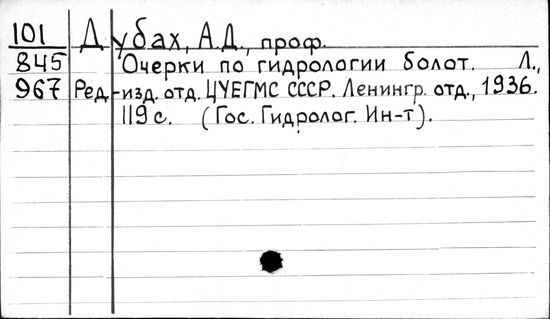 101 Дубах, А.Д., проф.
845 Очерки по гидрологии болот. Л.,
967 Ред.-изд. отд. ЦУЕГМС СССР. Ленингр. отд., 1936.
119 с. (Гос. Гидролог. Ин-т).